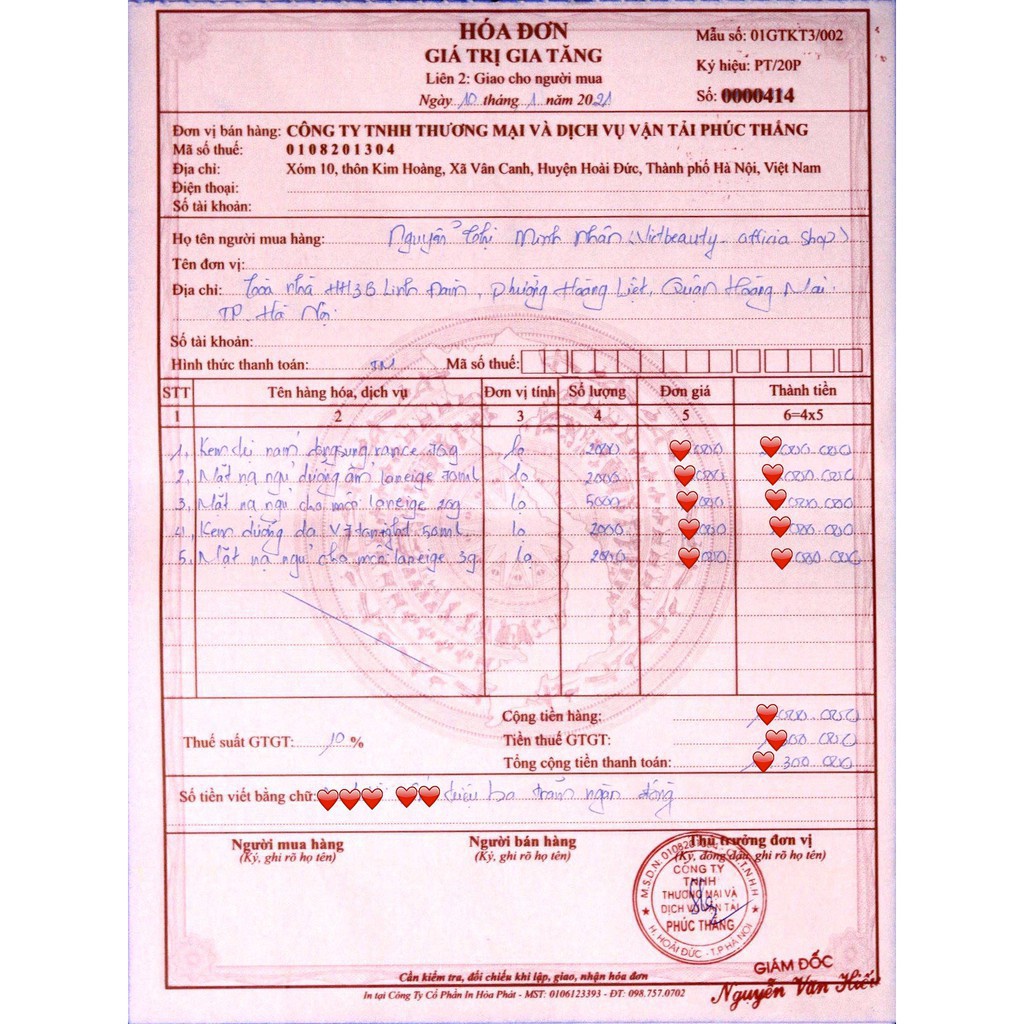 HÓA ĐƠN
GIÁ TRỊ GIA TĂNG
Liên 2: Giao cho người mua
Ngày 10 tháng 1 năm 2021
Mẫu số: 01GTKT3/002
Ký hiệu: PT/20P
Số: 0000414
Đơn vị bán hàng: CÔNG TY TNHH THƯƠNG MẠI VÀ DỊCH VỤ VẬN TẢI PHÚC THẮNG
Mã số thuế: 0108201304
Địa chỉ: Xóm 10, thôn Kim Hoàng, Xã Vân Canh, Huyện Hoài Đức, Thành phố Hà Nội, Việt Nam
Điện thoại:
Số tài khoản:
Họ tên người mua hàng: Nguyễn Thị Minh Nhân (Vietbeauty. officia shop)
Tên đơn vị:
Địa chỉ: Toà nhà HH3B Linh Đàm, Phường Hoàng Liệt, Quận Hoàng Mai
TP. Hà Nội
Số tài khoản:
Hình thức thanh toán: TM Mã số thuế:
STT Tên hàng hóa, dịch vụ Đơn vị tính Số lượng Đơn giá Thành tiền
1 2 3 4 5 6=4x5
1. Kem dị nám dongsung rance lọ 2000 000 000.000
2. Mặt nạ ngủ dưỡng ẩm laneige 70ml lọ 2000 000 000.000
3. Mặt nạ ngủ cho môi laneige 20g lọ 5000 000 000.000
4. Kem dưỡng da V7 50ml lọ 2000 000 000.000
5. Mặt nạ ngủ cho môi laneige 3g lọ 000 000.000
Cộng tiền hàng: 000.000
Thuế suất GTGT: 10 % Tiền thuế GTGT: 00.000
Tổng cộng tiền thanh toán: 300.000
Số tiền viết bằng chữ: triệu ba trăm ngàn đồng
Người mua hàng Người bán hàng Thủ trưởng đơn vị
(Ký, ghi rõ họ tên) (Ký, ghi rõ họ tên) (Ký, đóng dấu, ghi rõ họ tên)
CÔNG TY
TNHH
THƯƠNG MẠI VÀ
DỊCH VỤ VẬN TẢI
PHÚC THẮNG
H. HOÀI ĐỨC - T.P HÀ NỘI
GIÁM ĐỐC
Nguyễn Văn Hiếu
Cần kiểm tra, đối chiếu khi lập, giao, nhận hóa đơn
In tại Công Ty Cổ Phần In Hòa Phát - MST: 0106123393 - ĐT: 098.757.0702